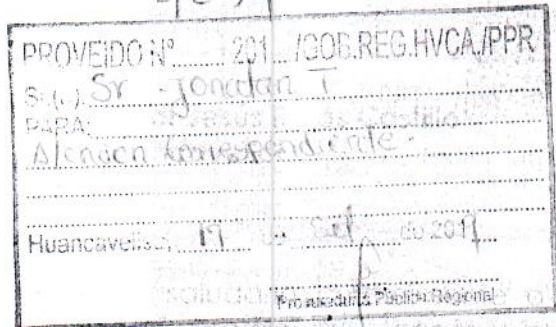 PROVEIDO N° ........ 201... /GOB.REG.HVCA./PPR
S.(.) Sr Jonatan T
PARA:
Atención correspondiente.
Huancavelica, 19 de Set de 201
Procuraduría Pública Regional